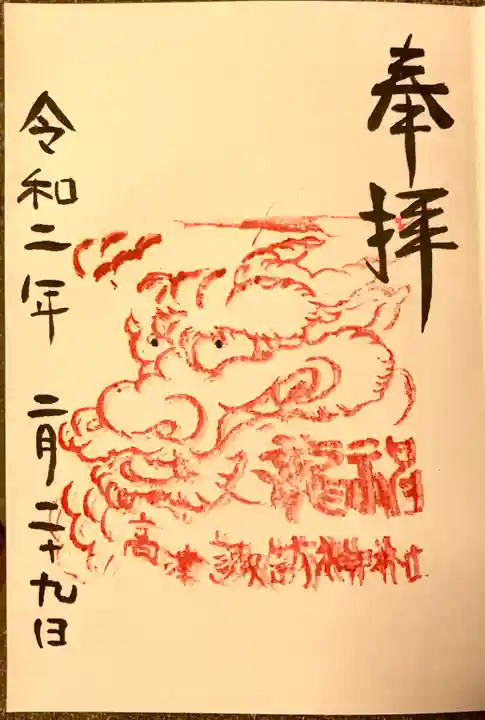 奉拝
龍神
高津諏訪神社
令和二年 二月二十九日